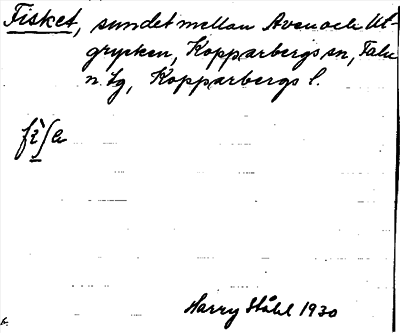 Fisket, sundet mellan Aven och Ut-
grycken, Kopparbergs sn, Falu
n. tg, Kopparbergs l.
Harry Ståhl 1930